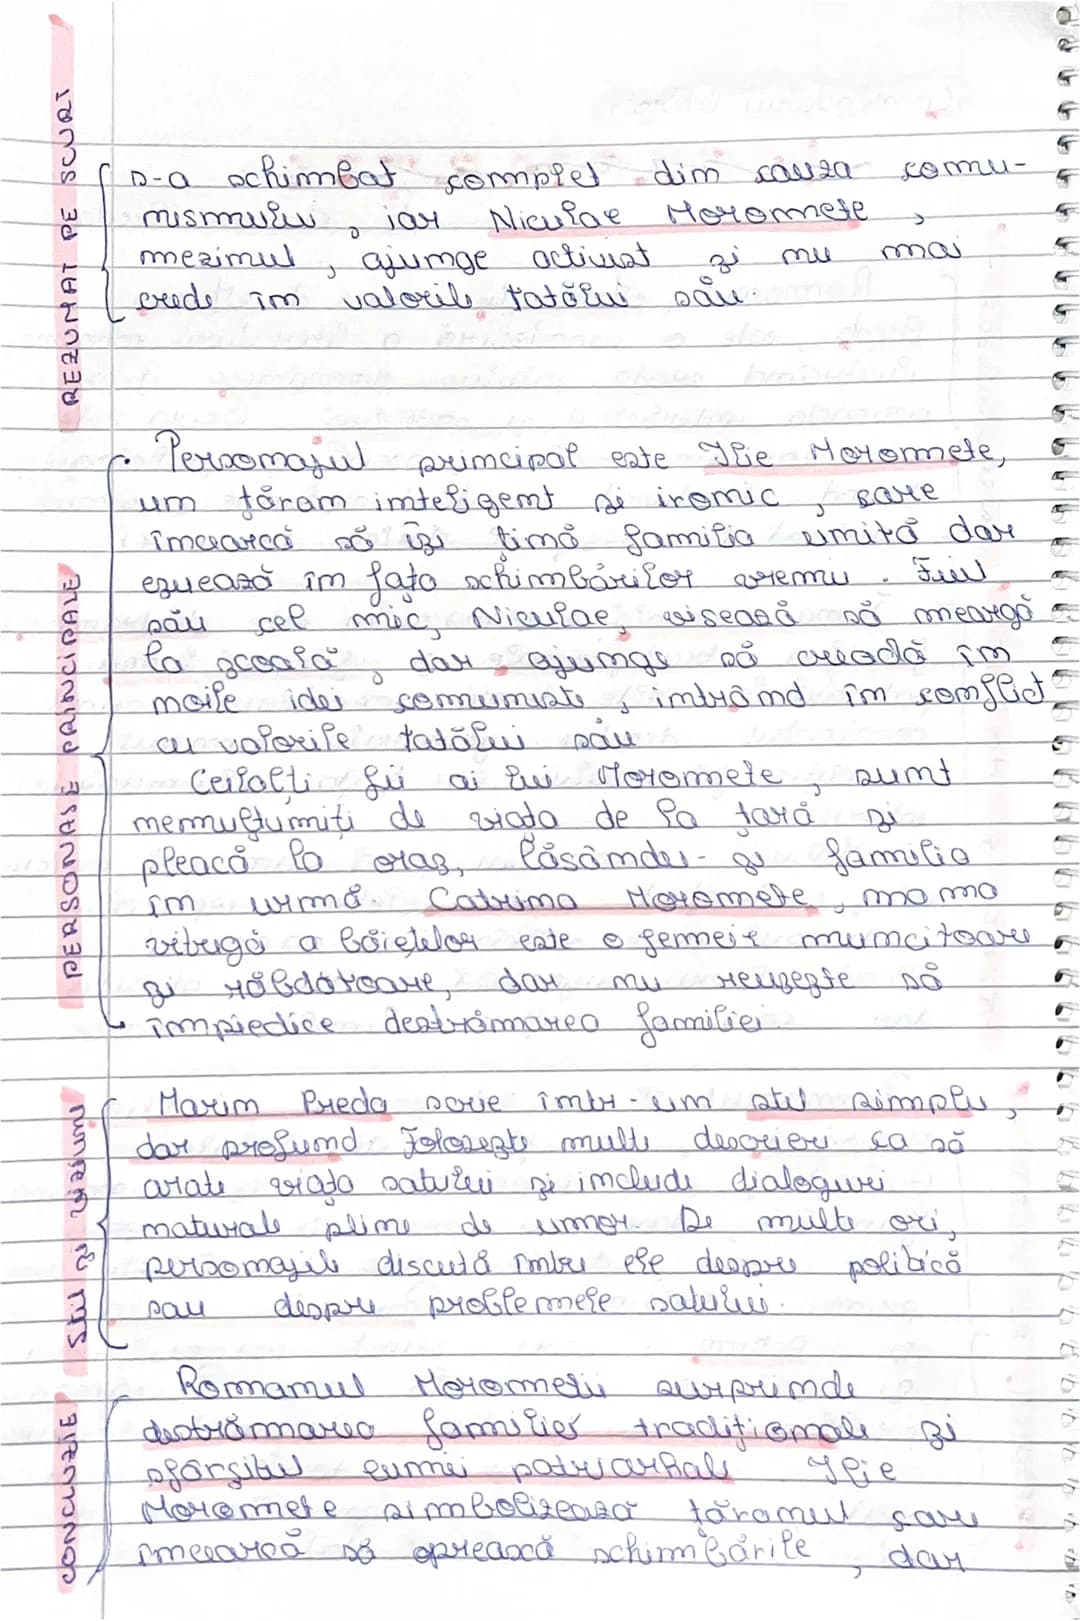 REZUMAT PE SCURT
s-a schimbat complet din cauza comu-
nismului, iar Niculae Moromete,
mezinul, ajunge activist și nu mai
crede în valorile tatălui său.
PERSONAJE PRINCIPALE
Personajul principal este Ilie Moromete,
un țăran inteligent și ironic, care
încearcă să își țină familia unită dar
eșuează în fața schimbărilor vremii. Fiul
său cel mic, Niculae, visează să meargă
la școală, dar ajunge să creadă în
noile idei comuniste, intrând în conflict
cu valorile tatălui său
Ceilalți fii ai lui Moromete, sunt
nemulțumiți de viața de la țară și
pleacă la oraș, lăsându-și familia
în urmă. Catrina Moromete, mama
vitregă a băieților este o femeie muncitoare
și răbdătoare, dar nu reușește să
împiedice destrămarea familiei.
STIL ȘI
Marin Preda scrie într-un stil simplu,
dar profund. Folosește multe descrieri ca să
arate viața satului și include dialoguri
naturale pline de umor. De multe ori,
personajele discută între ele despre politică
sau despre problemele satului.
CONCLUZIE
Romanul Moromeții surprinde
destrămarea familiei tradiționale și
sfârșitul lumii patriarhale Ilie
Moromete simbolizează țăranul care
încearcă să oprească schimbările, dar